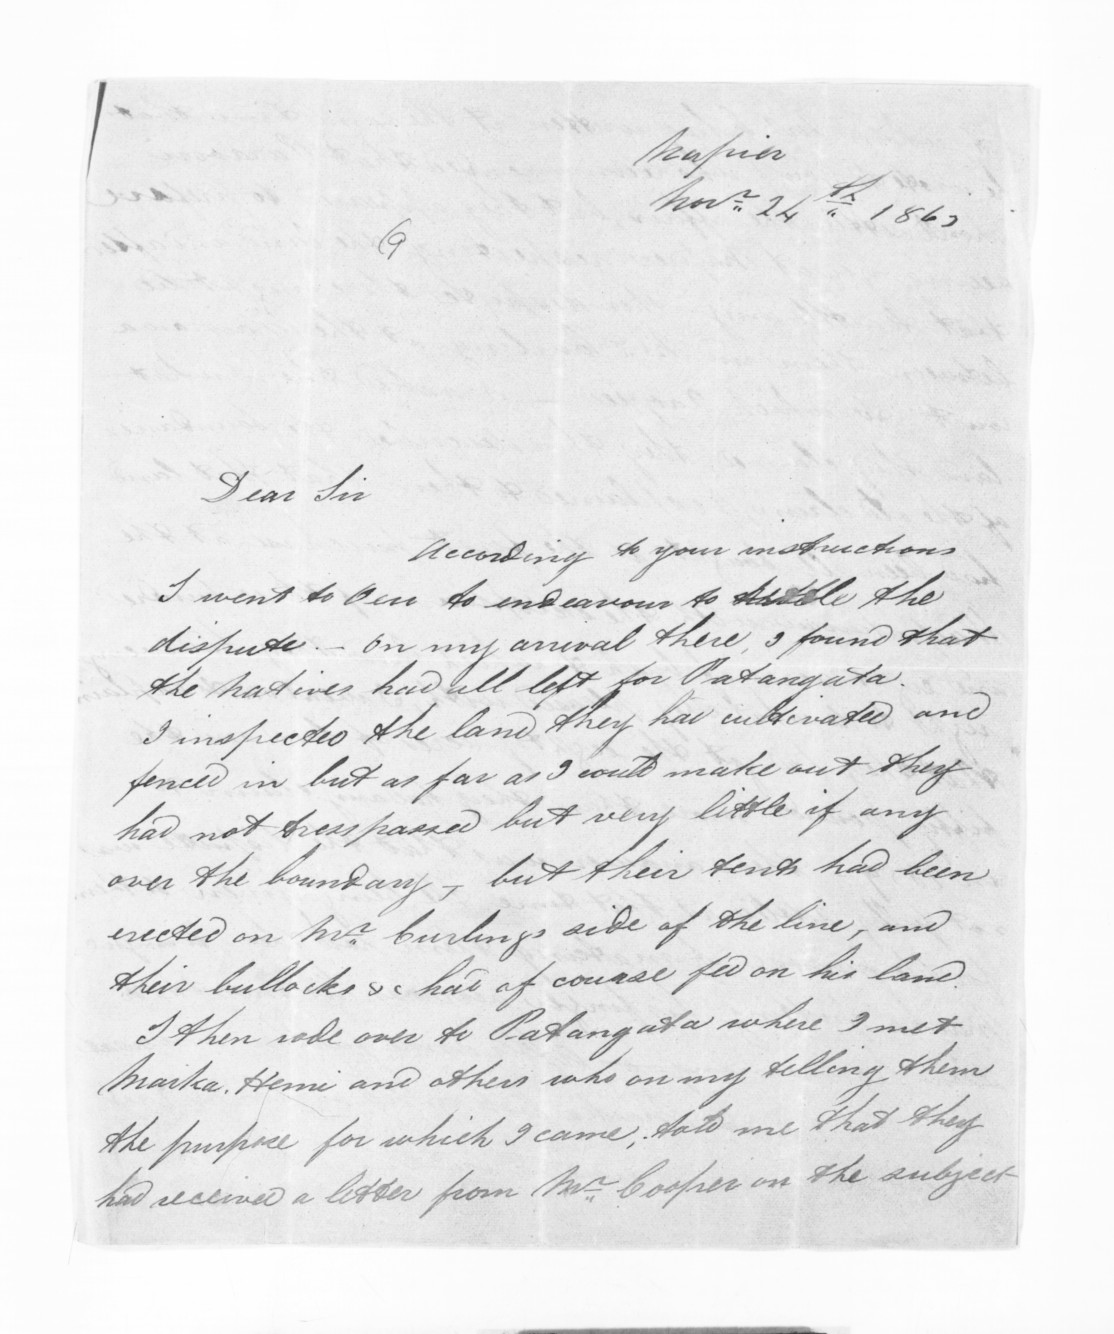 Napier
Novr. 24th 1863
(9
Dear Sir
According to your instructions
I went to Oeru to endeavour to settle the
dispute. – On my arrival there, I found that
the natives had all left for Patangata.
I inspected the land they had cultivated and
fenced in but as far as I could make out they
had not tresspassed but very little if any
over the boundary –, but their tents had been
erected on Mr. Curlings side of the line, and
their bullocks &c had of course fed on his land.
I then rode over to Patangata where I met
Maika. Hemi and others who on my telling them
the purpose for which I came, told me that they
had received a letter from Mr. Cooper on the subject